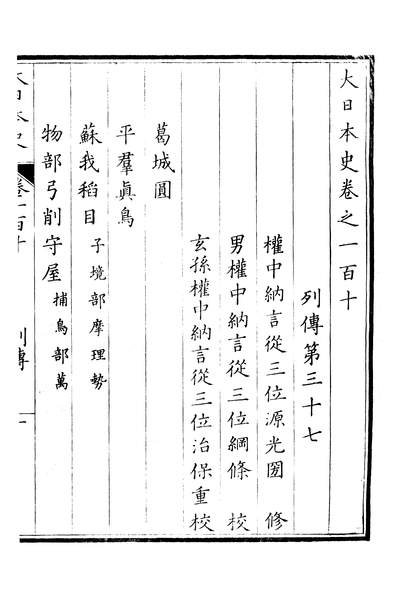 大日本史卷之一百十
列傳第三十七
權中納言從三位源光圀 修
男權中納言從三位綱條 校
玄孫權中納言從三位治保重校
葛城圓
平羣眞鳥
蘇我稻目 子境部摩理勢
物部弓削守屋 捕鳥部萬
大日本史 卷一百十 列傳 一